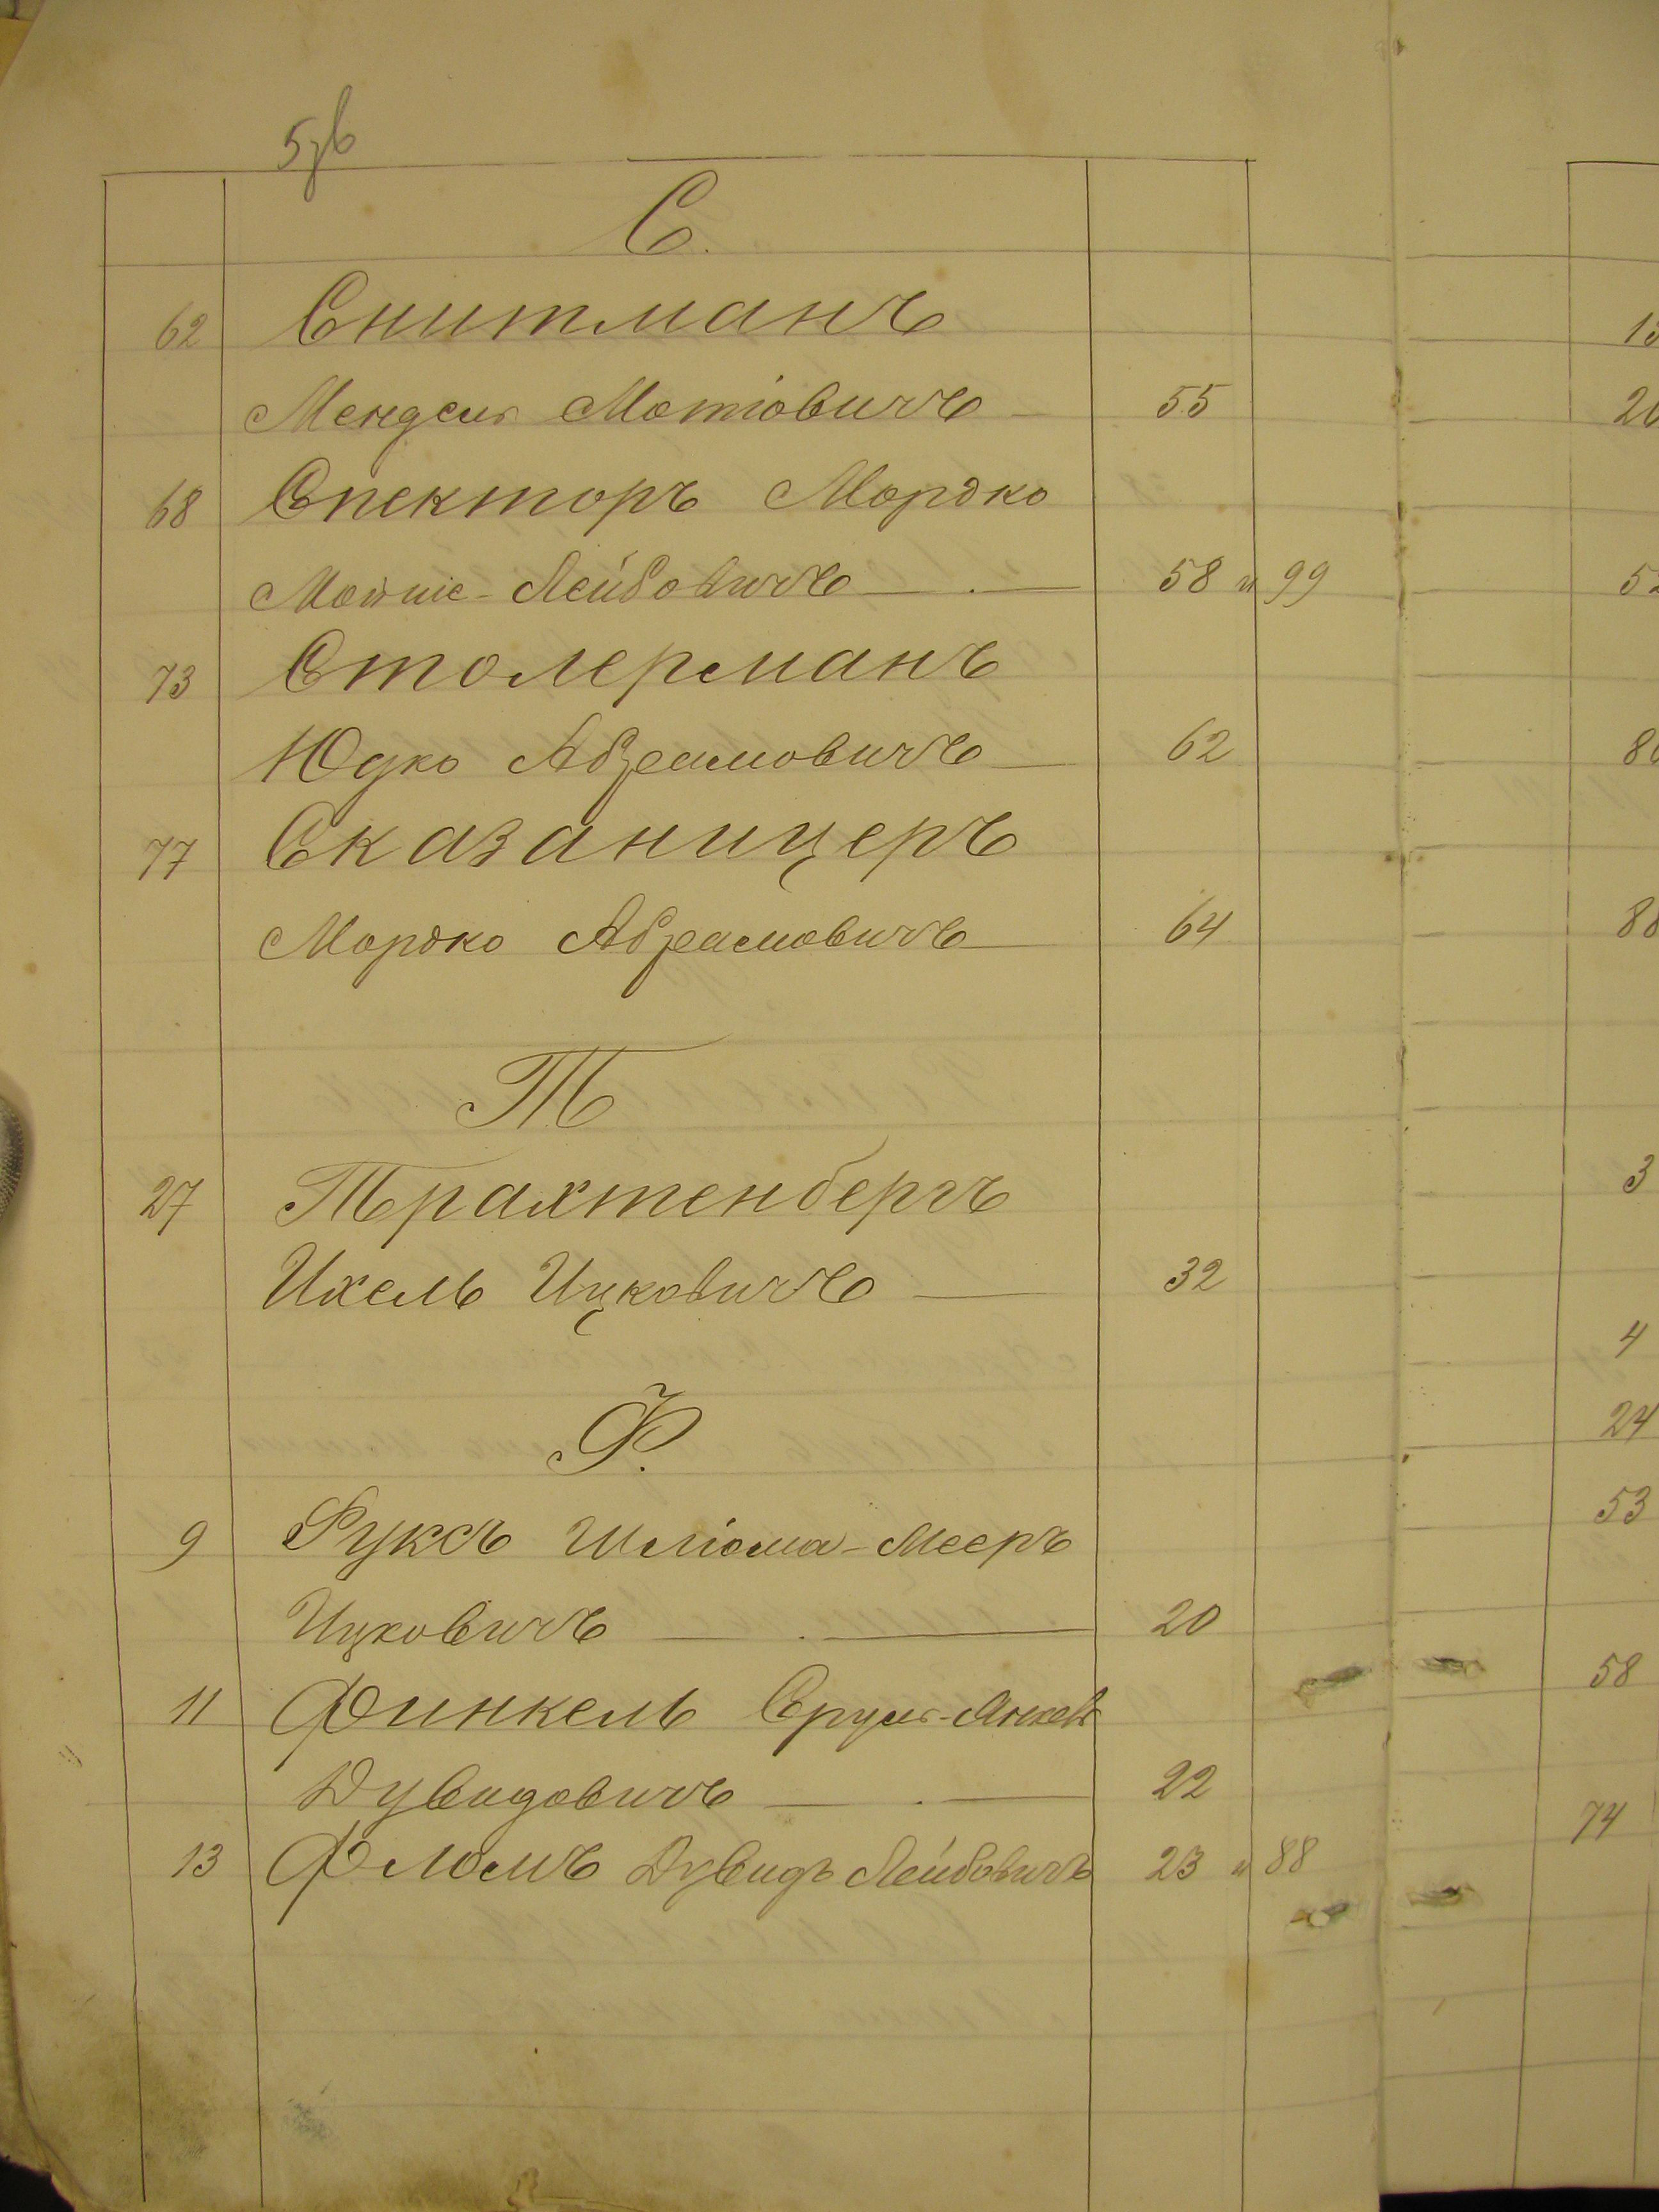 С.
62 Снитманъ
Мендель Мотіовичъ 55
68 Спекторъ Мордко
Мойше-Лейбовичъ 58 и 99
73 Столерманъ
Юдко Абрамовичъ 62
77 Сказаницеръ
Мордко Абрамовичъ 64
Т
27 Трахтенбергъ
Ихель Ицковичъ 32
Ф.
9 Фуксъ Шліома-Мееръ
Ицковичъ 20
11 Финкель Сруль-Янкель
Дувидовичъ 22
13 Дувидъ Лейбовичъ 23 и 88
52
3
4
24
53
58
74